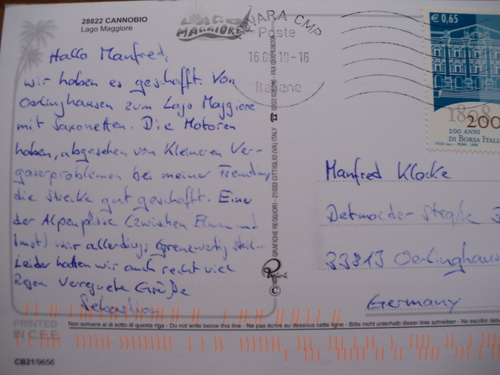 28822 CANNOBIO
Lago Maggiore
LAGO
MAGGIORE
Hallo Manfred,
wir haben es geschafft. Von
Oerlinghausen zum Lago Maggiore
mit Saxonetten. Die Motoren
haben, abgesehen von kleineren Ver-
gaserproblemen bei meiner
die Strecke gut geschafft. Einer
der Alpenpässe (zwischen und
Imst) war allerdings grenzwertig steil.
Leider hatten wir auch recht viel
Regen Grüße
Sebastian
NOVARA CMP
Poste
10-16
Italiane
€ 0,65
1808
200
200 ANNI
DI BORSA ITALIANA
GRAFICHE REGGIORI - 21033 CITTIGLIO (VA) ITALY
Manfred Klocke
Detmolder Straße
33813 Oerlinghausen
Germany
PRINTED
IN C.E.E.
Non scrivere al di sotto di questa riga - Do not write below this line - Ne pas écrire au dessous cette ligne - Bitte nicht unterhalb dieser linie schreiben - No escribir debajo
CB21/9656